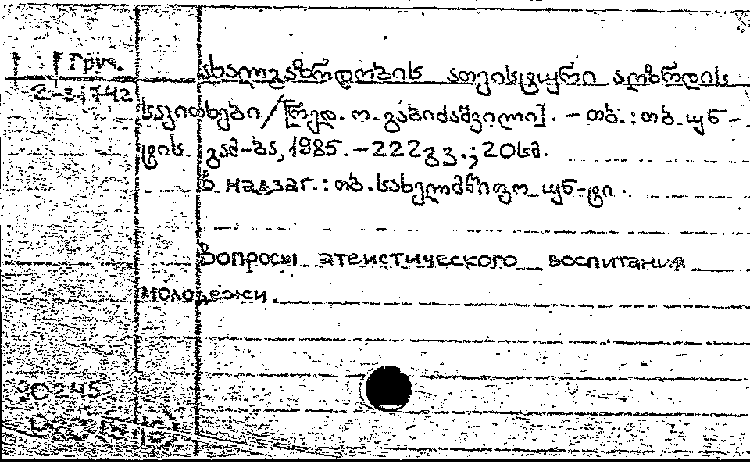 Груз.
2-21742
ახალგაზრდობის ათეისტური აღზრდის
საკითხები/[რედ. ო. გაბიძაშვილი]. – თბ. : თბ. უნ-
ტის გამ-ბა, 1985. – 222გვ. ; 20სმ.
В надзаг. : თბ. სახელმწიფო უნ-ტი.
Вопросы атеистического воспитания
молодежи.
90245